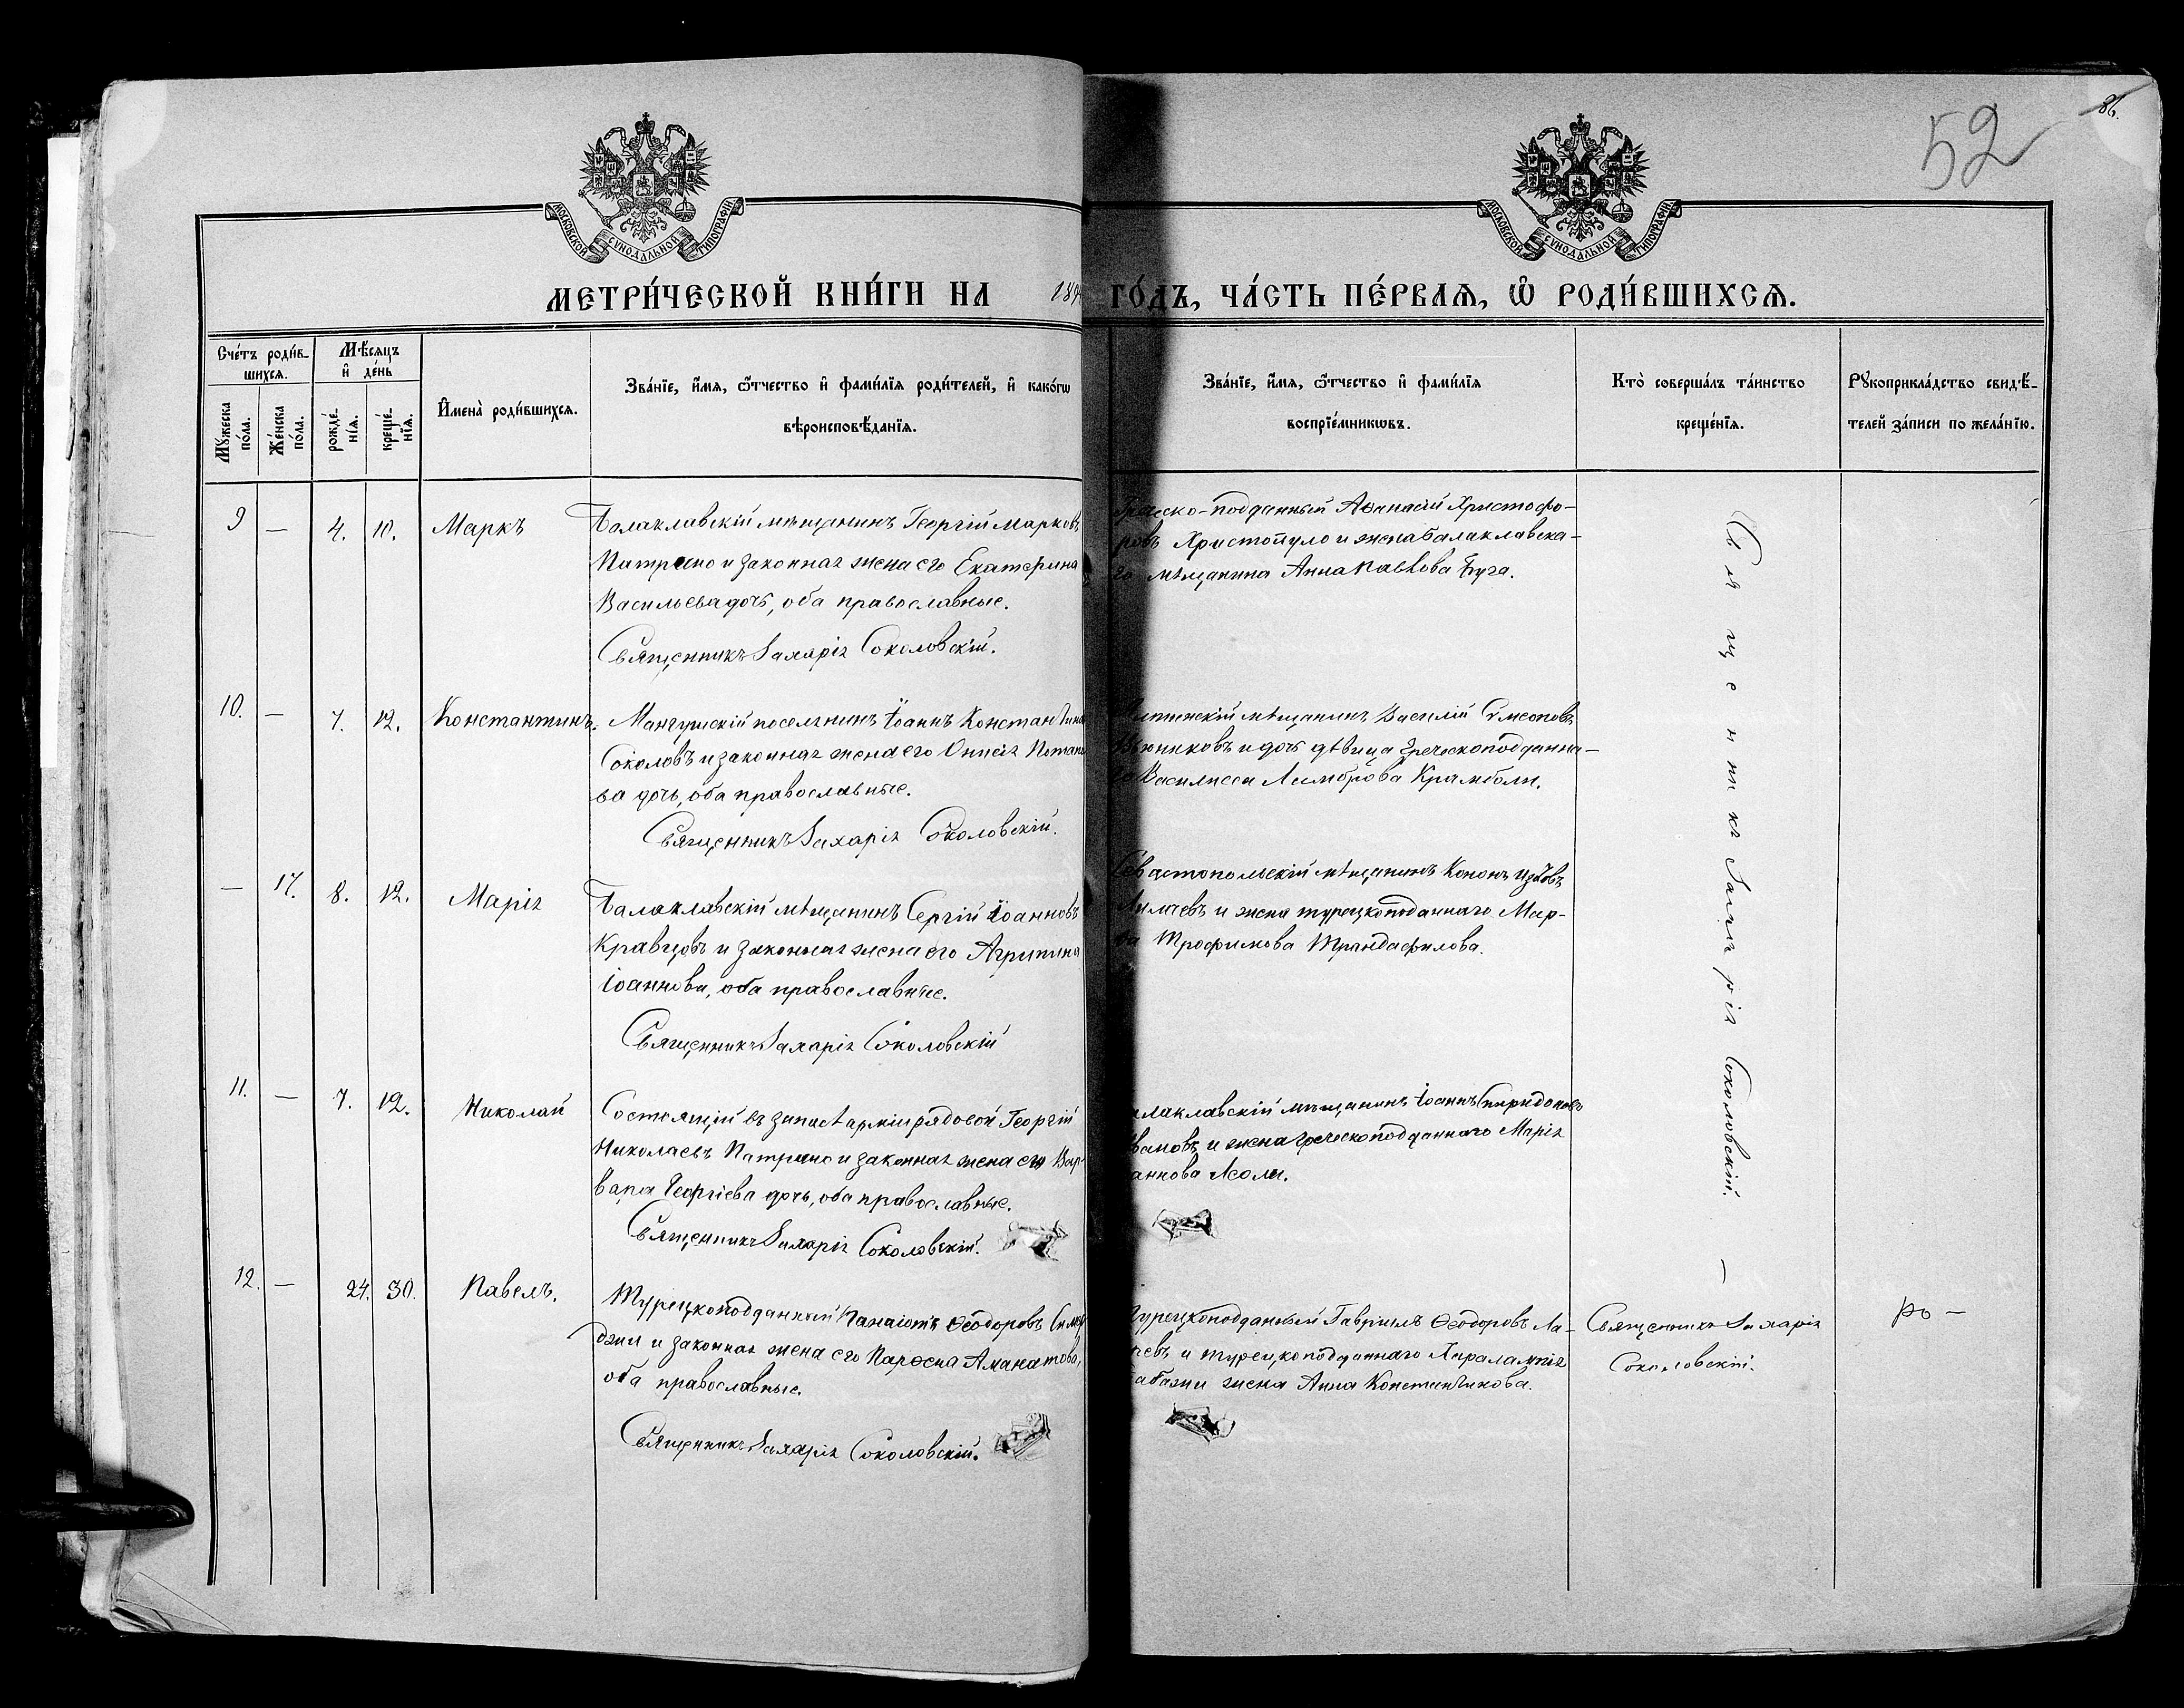 86.
52
МОСКОВСКОЙ СѴНОДАЛЬНОЙ ТИПОГРАФІИ
МОСКОВСКОЙ СѴНОДАЛЬНОЙ ТИПОГРАФІИ
МЕТРИ́ЧЕСКОЙ КНИ́ГИ НА 189 ГО́ДЪ, ЧА́СТЬ ПЕ́РВАѦ, Ѿ РОДИ́ВШИХСѦ.
Сче́тъ роди́в-
шихсѧ.
Мꙋ́жеска
по́ла.
Же́нска
по́ла.
Мѣ́сѧцъ
и҆ де́нь
рожде́-
нїѧ.
креще́-
нїѧ.
И҆мена̀ роди́вшихсѧ.
Зва́нїе, и҆́мѧ, ѻ҆́тчество и҆ фами́лїѧ роди́телей, и҆ како́гѡ
вѣроисповѣ́данїѧ.
Зва́нїе, и҆́мѧ, ѻ҆́тчество и҆ фами́лїѧ
воспрїе́мникѡвъ.
Кто̀ соверша́лъ та́инство
креще́нїѧ.
Рꙋкоприкла́дство свидѣ́-
телей за́писи по жела́нїю.
9 — 4. 10. Маркъ
Балаклавскій мѣщанинъ Георгій Марковъ
Патрино и законная жена его Екатерина
Васильева дочь, оба православные.
Священникъ Захарія Соколовскій.
Греческо-подданный Аѳанасій Христофо-
ровъ Христопуло и жена балаклавска-
го мѣщанина Анна Павлова
Священникъ Захарія Соколовскій. —
10. — 7. 12. Константинъ.
Мангушскій поселянинъ Іоаннъ Константино
Соколовъ и законная жена его Онисія Потапо
ва дочь, оба православные.
Священникъ Захарія Соколовскій.
мѣщанинъ Василій Симеоновъ
и дочь дѣвица Греческоподданна-
го Василисса Крамболи.
— 17. 8. 12. Марія
Балаклавскій мѣщанинъ Сергій Іоанновъ
Кравцовъ и законная жена его Агрипина
Іоаннова, оба православные.
Священникъ Захарія Соколовскій
Севастопольскій мѣщанинъ Кононъ
и жена турецкоподданнаго Мар-
Трофимова Трандафилова.
11. — 7. 12. Николай
Состоящій въ запасѣ арміи рядовой Георгій
Николаевъ Патрино и законная жена его Вар-
вара Георгіева дочь, оба православные.
Священникъ Захарія Соколовскій.
алаклавскій мѣщанинъ Іоаннъ Спиридоновъ
вановъ и жена Греческоподданнаго Марія
аннова
12. — 24. 30. Павелъ.
Турецкоподданный Панаіотъ Ѳеодоровъ
джи и законная жена его Аманатова,
оба православные.
Священникъ Захарія Соколовскій.
Турецкоподданный Гавріилъ Ѳеодоровъ Ла-
и турецкоподданнаго Харалампія
жена Анна Константинова.
Священникъ Захарія
Соколовскій.